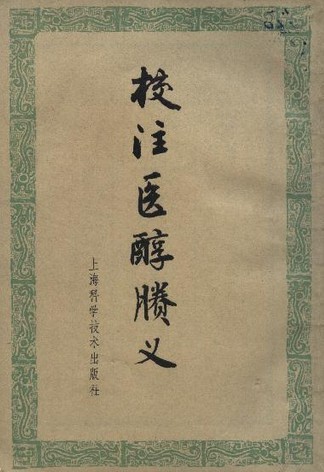 校注医醇賸义
上海科学技术出版社